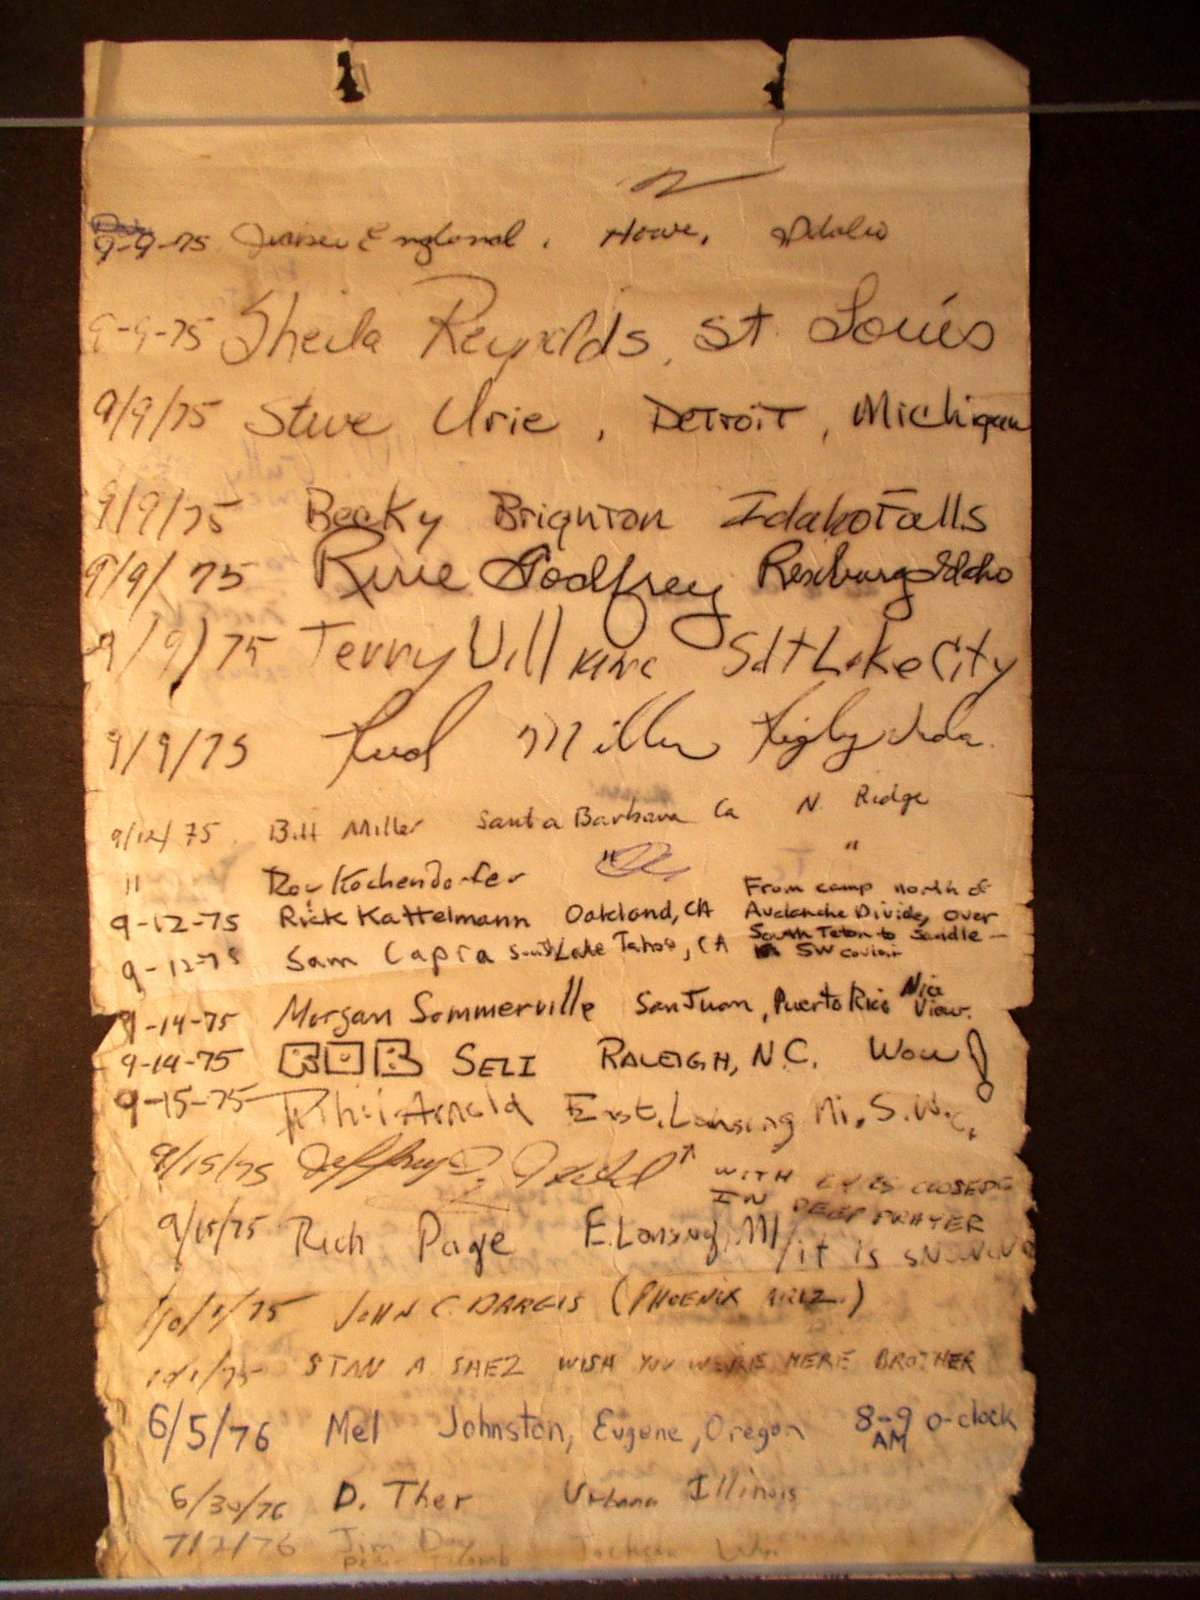 9-9-75 England, Howe, Idaho
9-9-75 Sheila Reynolds, St. Louis
9/9/75 Steve Urie, Detroit, Michigan
9/9/75 Becky Brighton Idaho Falls
9/9/75 Godfrey Rexburg Idaho
9/9/75 Terry Salt Lake City
9/9/75 Miller Rigby Ida.
9/12/75 Bill Miller Santa Barbara Ca N. Ridge
" Roy Kochendorfer " "
9-12-75 Rick Kattelmann Oakland, CA From camp north of
Avalanche Divide, over
South Teton to Saddle –
9-12-75 Sam Capra South Lake Tahoe, CA SW couloir
9-14-75 Morgan Sommerville San Juan, Puerto Rico Nice
View.
9-14-75 BOB SELI RALEIGH, N.C. Wow!
9-15-75 Phil Arnold East. Lansing Mi. S.W.C.
9/15/75 Jeffrey ↑ WITH EYES CLOSED
IN DEEP PRAYER
9/15/75 Rich Page E. Lansing, MI / it is SNOWING
10/1/75 JOHN C. DARGIS (PHOENIX ARIZ.)
10/1/75 STAN A SHEZ WISH YOU WERE HERE BROTHER
6/5/76 Mel Johnston, Eugene, Oregon 8-9 o-clock
AM
6/30/76 D. Ther Urbana Illinois
7/2/76 Jim Day Jackson Wy.